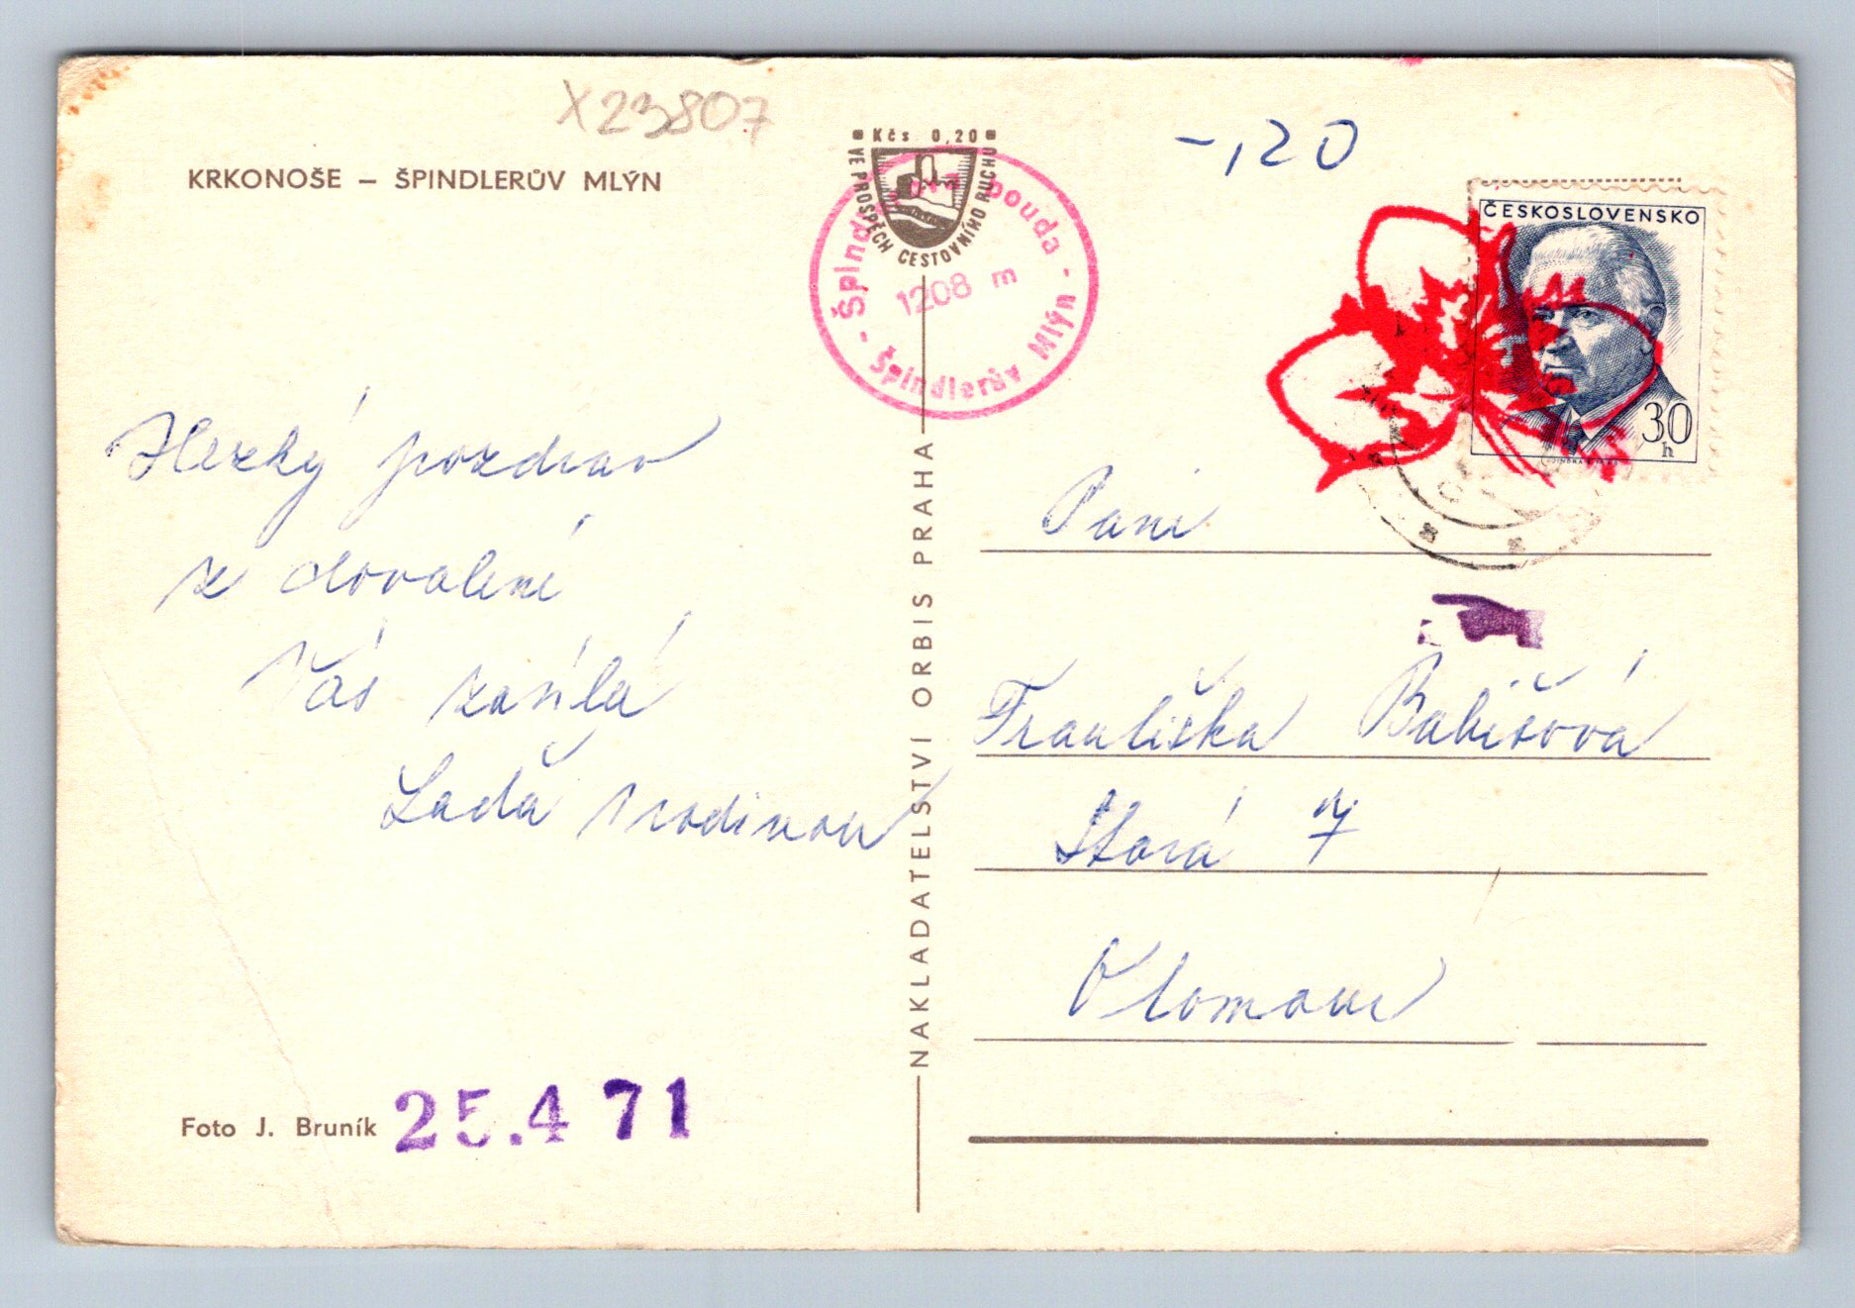 X23807
Kčs 0,20
VE PROSPĚCH CESTOVNÍHO RUCHU
-,20
KRKONOŠE – ŠPINDLERŮV MLÝN
ČESKOSLOVENSKO
30
h
bouda -
1208 m
- Špindlerův Mlýn
Hezký pozdrav
z dovolené
Vás zasílá
Laďa s rodinou
NAKLADATELSTVÍ ORBIS PRAHA
Paní
Františka Babišová
Stará 7
Olomouc
Foto J. Bruník
25.4 71